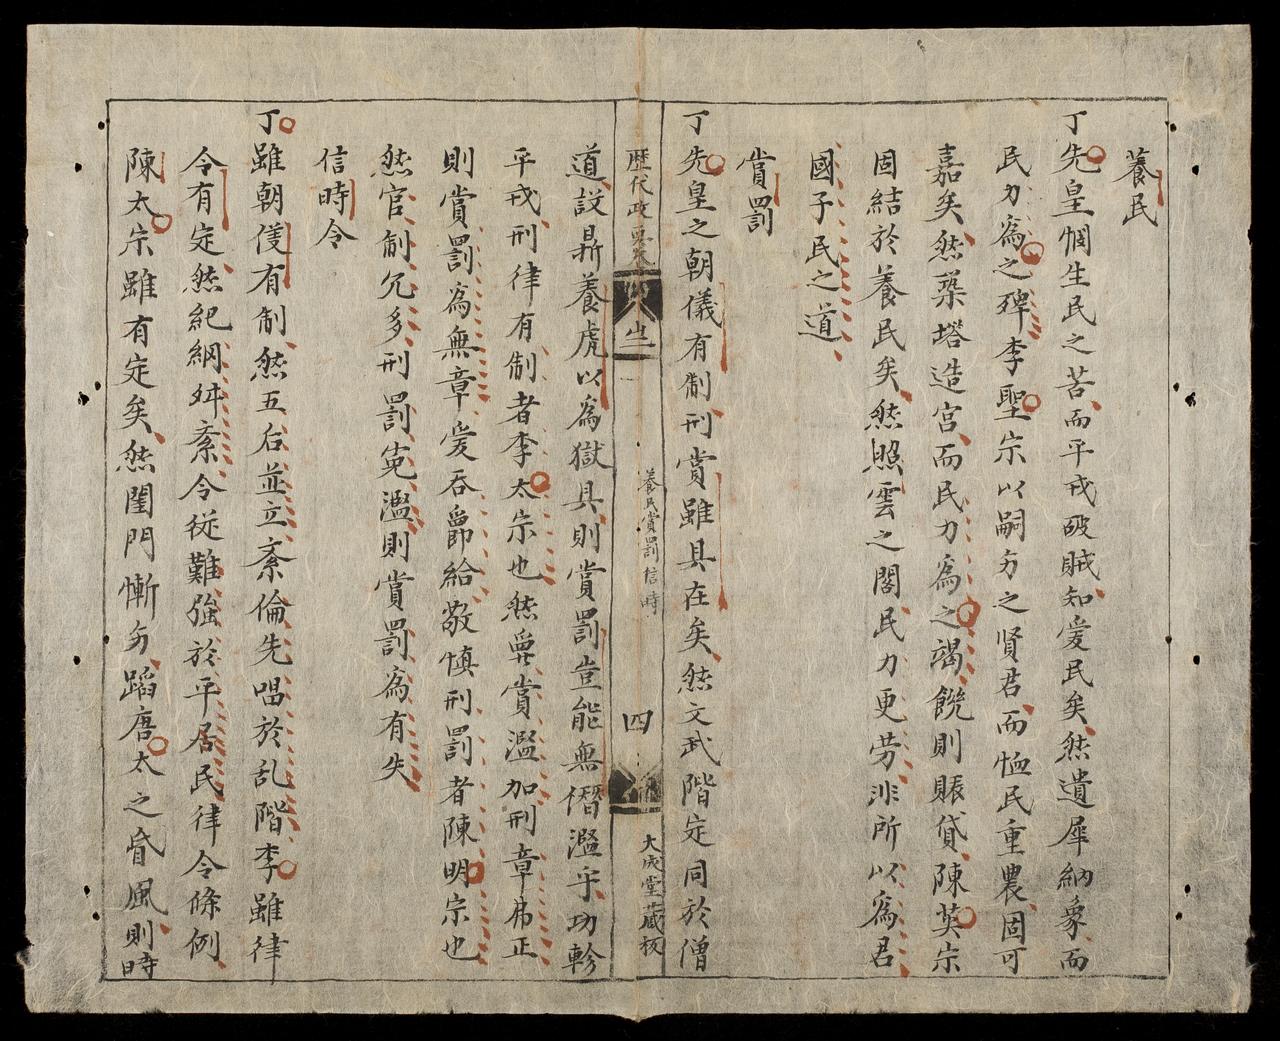 養民
丁先皇惻生民之苦而平戎破賊知爱民矣然遺犀納象而
民力為之殫李聖宗以嗣夯之賢君而恤民重農固可
嘉矣然築塔造宮而民力為之竭饑則賑貸陳英宗
固結於養民矣然照雲之閣民力更劳非所以為君
國子民之道
賞罰
丁先皇之朝儀有制刑賞雖具在矣然文武階定同於僧
歷代政要卷
養民賞罰信時
四
大成堂藏板
道設鼎養虎以為獄具則賞罰豈能無僭濫乎功軫
平戎刑律有制者李太宗也然爵賞濫加刑章弗正
則賞罰為無章爰吞爵給敬慎刑罰者陳明宗也
然官制冗多刑罰寃濫則賞罰為有失
信時令
丁雖朝儀有制然五后並立紊倫先唱於乱階李雖律
令有定然紀綱舛紊令従難強於平居民律令條例
陳太宗雖有定矣然閨門慚夯蹈唐太之昏風則時